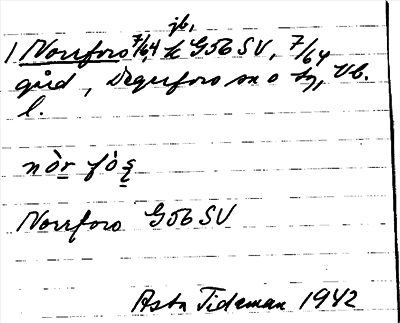 jb,
1 Norrfors 7/64, k G56 SV, 7/64
gård, Degerfors sn o tg, Vb.
l.
nòr fòș
Norrfors G56 SV
Asta Tideman 1942